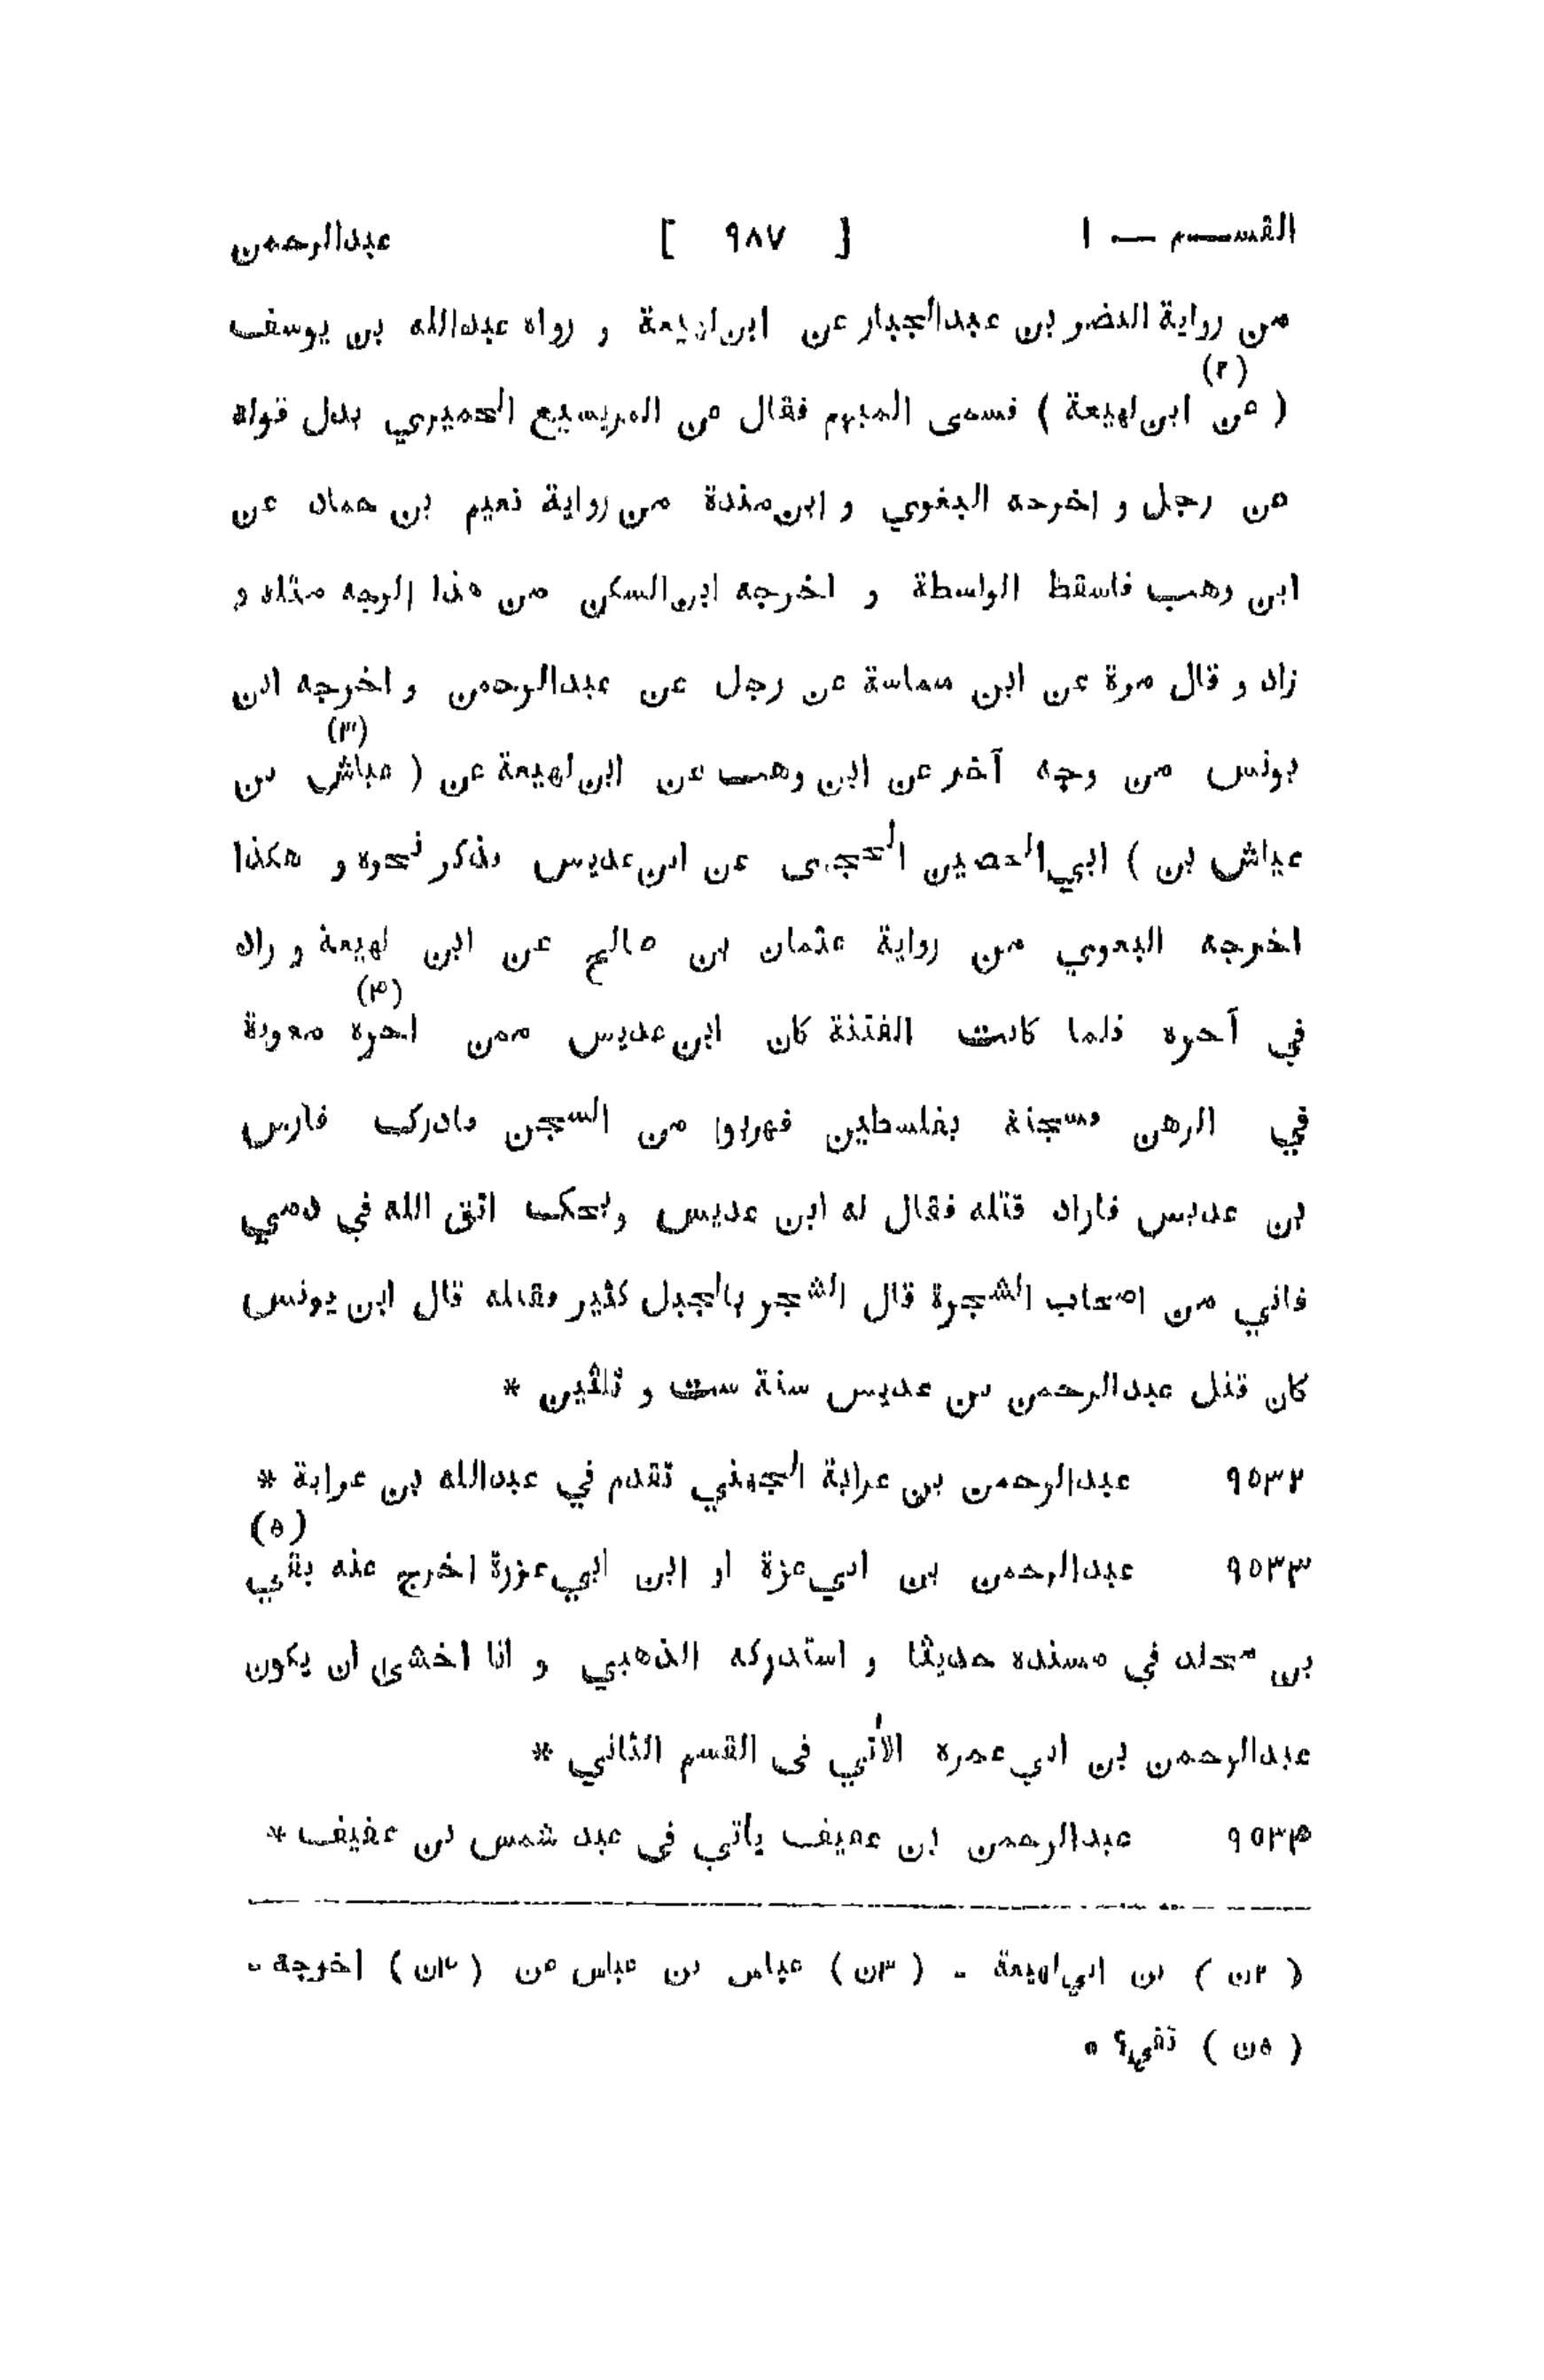 القسم — ١ [ ٩٨٧ ] عبدالرحمن
من رواية النضر بن عبدالجبار عن ابن لهيعة و رواه عبدالله بن يوسف
( عن ابن لهيعة ) (٢) فسمى المبهم فقال عن المريسيع الحميري بدل قوله
عن رجل و اخرجه البغوي و ابن مندة من رواية نعيم بن حماد عن
ابن وهب فاسقط الواسطة و اخرجه ابن السكن من هذا الوجه مثله و
زاد و قال مرة عن ابن شماسة عن رجل عن عبدالرحمن و اخرجه ابن
يونس من وجه آخر عن ابن وهب عن ابن لهيعة عن ( عياش (٣) بن
عياش بن ) ابي الحصين الحجري عن ابن عديس فذكر نحوه و هكذا
اخرجه البغوي من رواية عثمان بن صالح عن ابن لهيعة و زاد
في آخره فلما كانت الفتنة كان ابن عديس ممن اخره (۴) معوية
في الرهن فسجنه بفلسطين فهربوا من السجن فادرك فارس
بن عديس فاراد قتله فقال له ابن عديس ويحك اتق الله في دمي
فاني من اصحاب الشجرة قال الشجر بالجبل كثير فقتله قال ابن يونس
كان قتل عبدالرحمن بن عديس سنة ست و ثلثين *
٩٥٣٢ عبدالرحمن بن عرابة الجهني تقدم في عبدالله بن عرابة *
٩٥٣٣ عبدالرحمن بن ابي عزة او ابن ابي عزرة اخرج عنه بقي (٥)
بن مخلد في مسنده حديثا و استدركه الذهبي و انا اخشى ان يكون
عبدالرحمن بن ابي عمره الأتي فى القسم الثاني *
٩٥٣۴ عبدالرحمن بن عفيف يأتي فى عبد شمس بن عفيف *
( ٢ن ) بن ابي لهيعة - ( ٣ن ) عباس بن عباس عن ( ۴ن ) اخرجه -
( ٥ن ) تقي؟ *